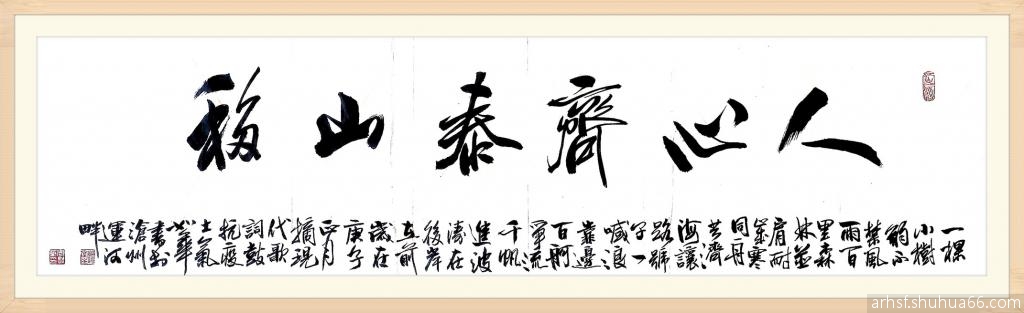 人心齊泰山移
一棵
小樹
弱不
禁風
雨百
里森
林並
肩耐
歲寒
同舟
共濟
海讓
路號
子一
喊浪
靠邊
百舸
爭流
千帆
進波
濤在
後岸
在前
歲在
庚子
正月
摘現
代歌
詞鼓
抗疫
士氣
書於
滄州
運河
畔
arhsf.shuhua66.com